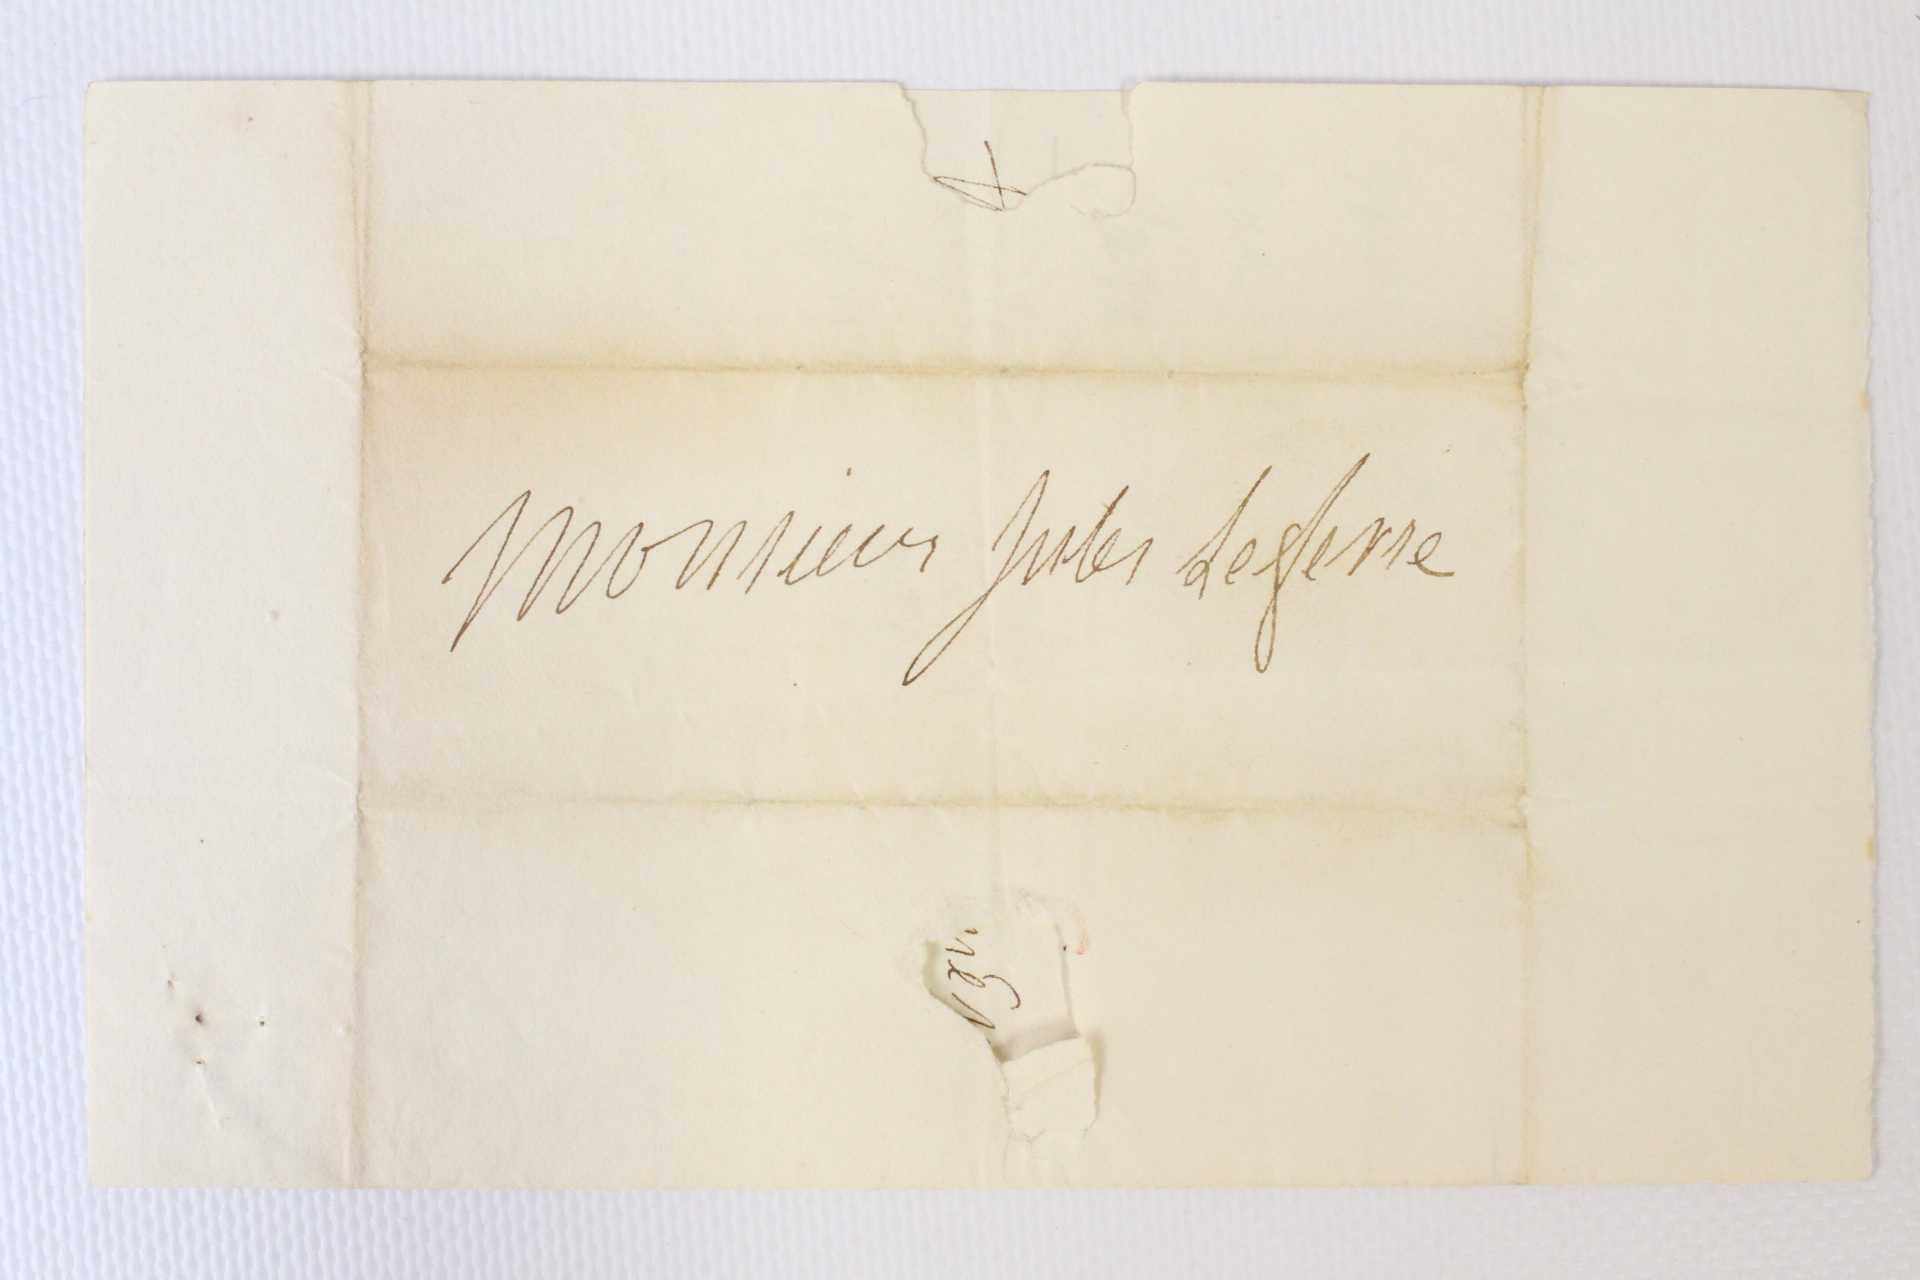 Monsieur Jules Lefevre